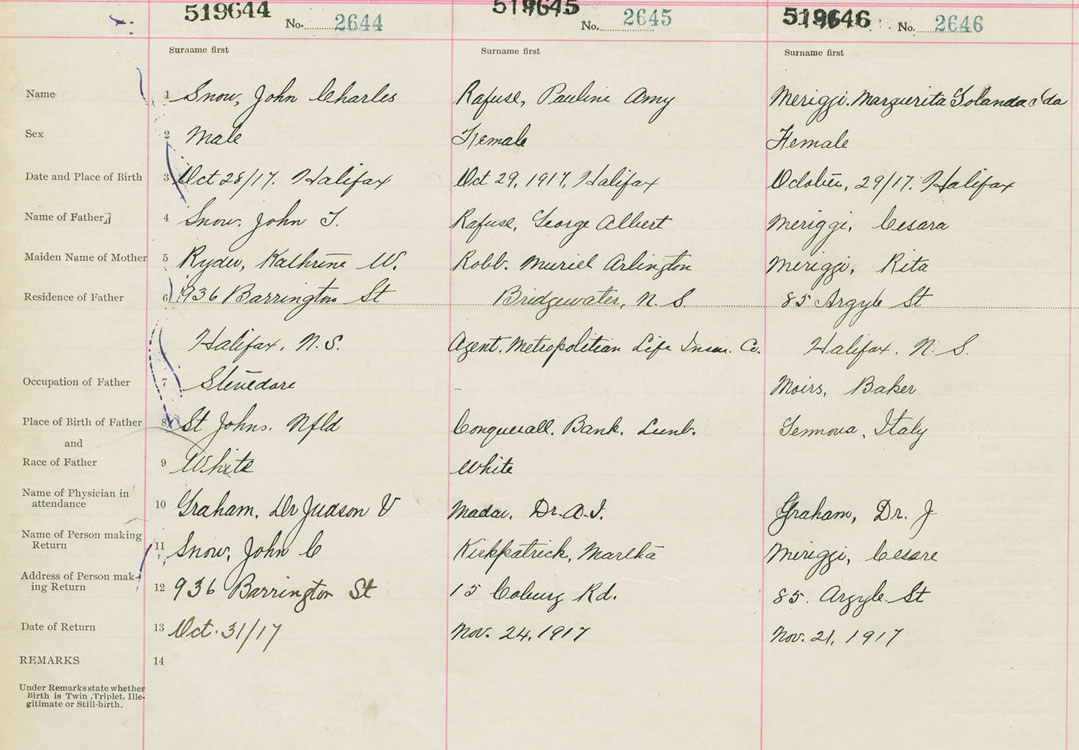 519644 No. 2644 519645 No. 2645 519646 No. 2646
Surname first Surname first Surname first
Name 1 Snow, John Charles Rafuse, Pauline Amy Meriggi. Marguerita Iolanda Ida
Sex 2 Male Female Female
Date and Place of Birth 3 Oct 28/17. Halifax Oct 29, 1917, Halifax October, 29/17. Halifax
Name of Father 4 Snow. John T. Rafuse, George Albert Meriggi, Cesara
Maiden Name of Mother 5 Ryder, Kathrine W. Robb. Muriel Arlington Meriggi, Rita
Residence of Father 6 936 Barrington St Bridgewater, N. S. 85 Argyle St
Halifax, N.S. Agent. Metropolitian Life Insur. Co. Halifax, N. S.
Occupation of Father 7 Stevedore Moirs, Baker
Place of Birth of Father 8 St Johns. Nfld Conquerall. Bank. Lunb. Italy
and
Race of Father 9 White White
Name of Physician in attendance 10 Graham, Dr Judson V Dr. A.I. Graham, Dr. J
Name of Person making Return 11 Snow, John C Kirkpatrick, Martha Meriggi, Cesare
Address of Person making Return 12 936 Barrington St 15 Coburg Rd. 85. Argyle St
Date of Return 13 Oct. 31/17 Nov. 24, 1917 Nov. 21, 1917
REMARKS 14
Under Remarks state whether
Birth is Twin, Triplet, Ille-
gitimate or Still-birth.